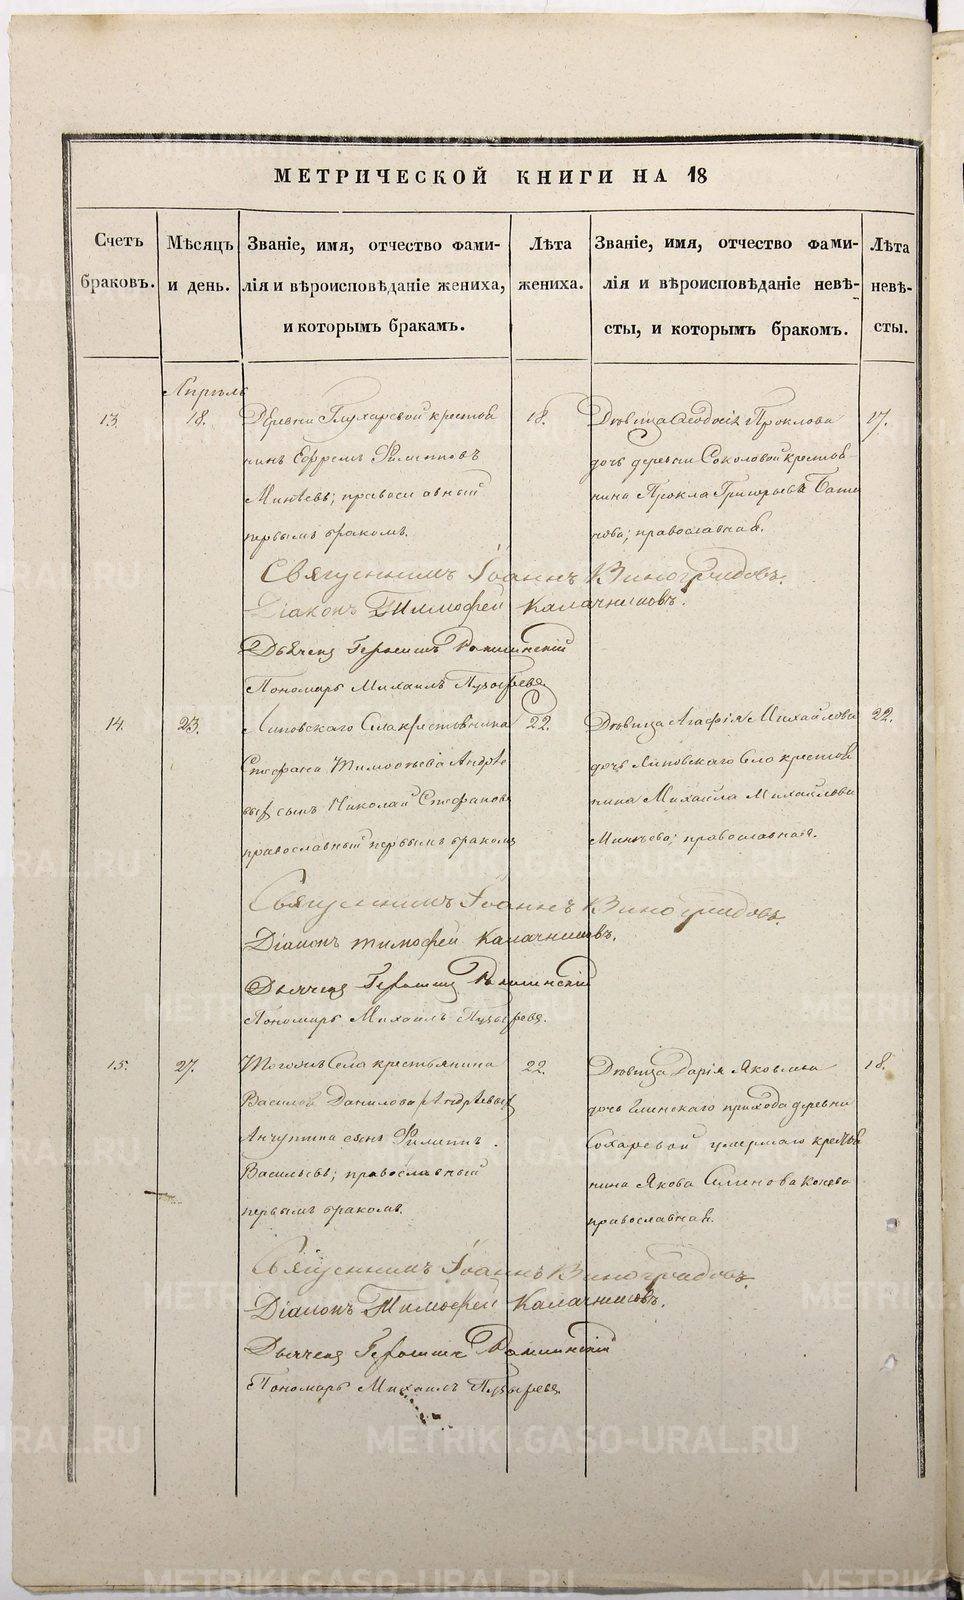 МЕТРИЧЕСКОЙ КНИГИ НА 18
Счетъ браковъ.
Мѣсяцъ и день.
Званіе, имя, отчество фами-
лія и вѣроисповѣданіе жениха,
и которымъ бракамъ.
Лѣта жениха.
Званіе, имя, отчество фами-
лія и вѣроисповѣданіе невѣ-
сты, и которымъ бракомъ.
Лѣта невѣ-
сты.
Апрѣль
13.
18.
Деревни Глухаревой крестья
нинъ Ефремъ Филиповъ
Минѣевъ; православный
первымъ бракомъ.
18.
Дѣвица Ѳеодосія Проклова
дочь деревни Соколовой крестья
нина Прокла Григорьева
православная.
17.
Священникъ Іоаннъ Виноградовъ.
Діаконъ Тимофей Калачниковъ.
Дьячекъ
Пономарь Михаилъ Пузыревъ
14.
23.
Липовскаго Села крестьянина
Стефана Тимофѣева Андрѣе
выхъ сынъ Николай Стефановъ
православный первымъ бракомъ
22.
Дѣвица Агафія Михайлова
дочь Липовскаго Села крестья
нина Михаила Михайлова
Минѣева; православная.
22.
Священникъ Іоаннъ Виноградовъ.
Діаконъ Тимофей Калачниковъ.
Дьячекъ
Пономарь Михаилъ Пузыревъ.
15.
27.
Тогожъ Села крестьянина
Василья Данилова Андрѣевыхъ
Анчутина сынъ Филиппъ
Васильевъ; православный
первымъ бракомъ.
22.
Дѣвица Дарія Яковлева
дочь Глинскаго прихода деревни
Сохаревой умершаго крестья
нина Якова Семенова
православная.
18.
Священникъ Іоаннъ Виноградовъ.
Діаконъ Тимофей Калачниковъ.
Дьячекъ
Пономарь Михаилъ Пузыревъ
METRIKI.GASO-URAL.RU